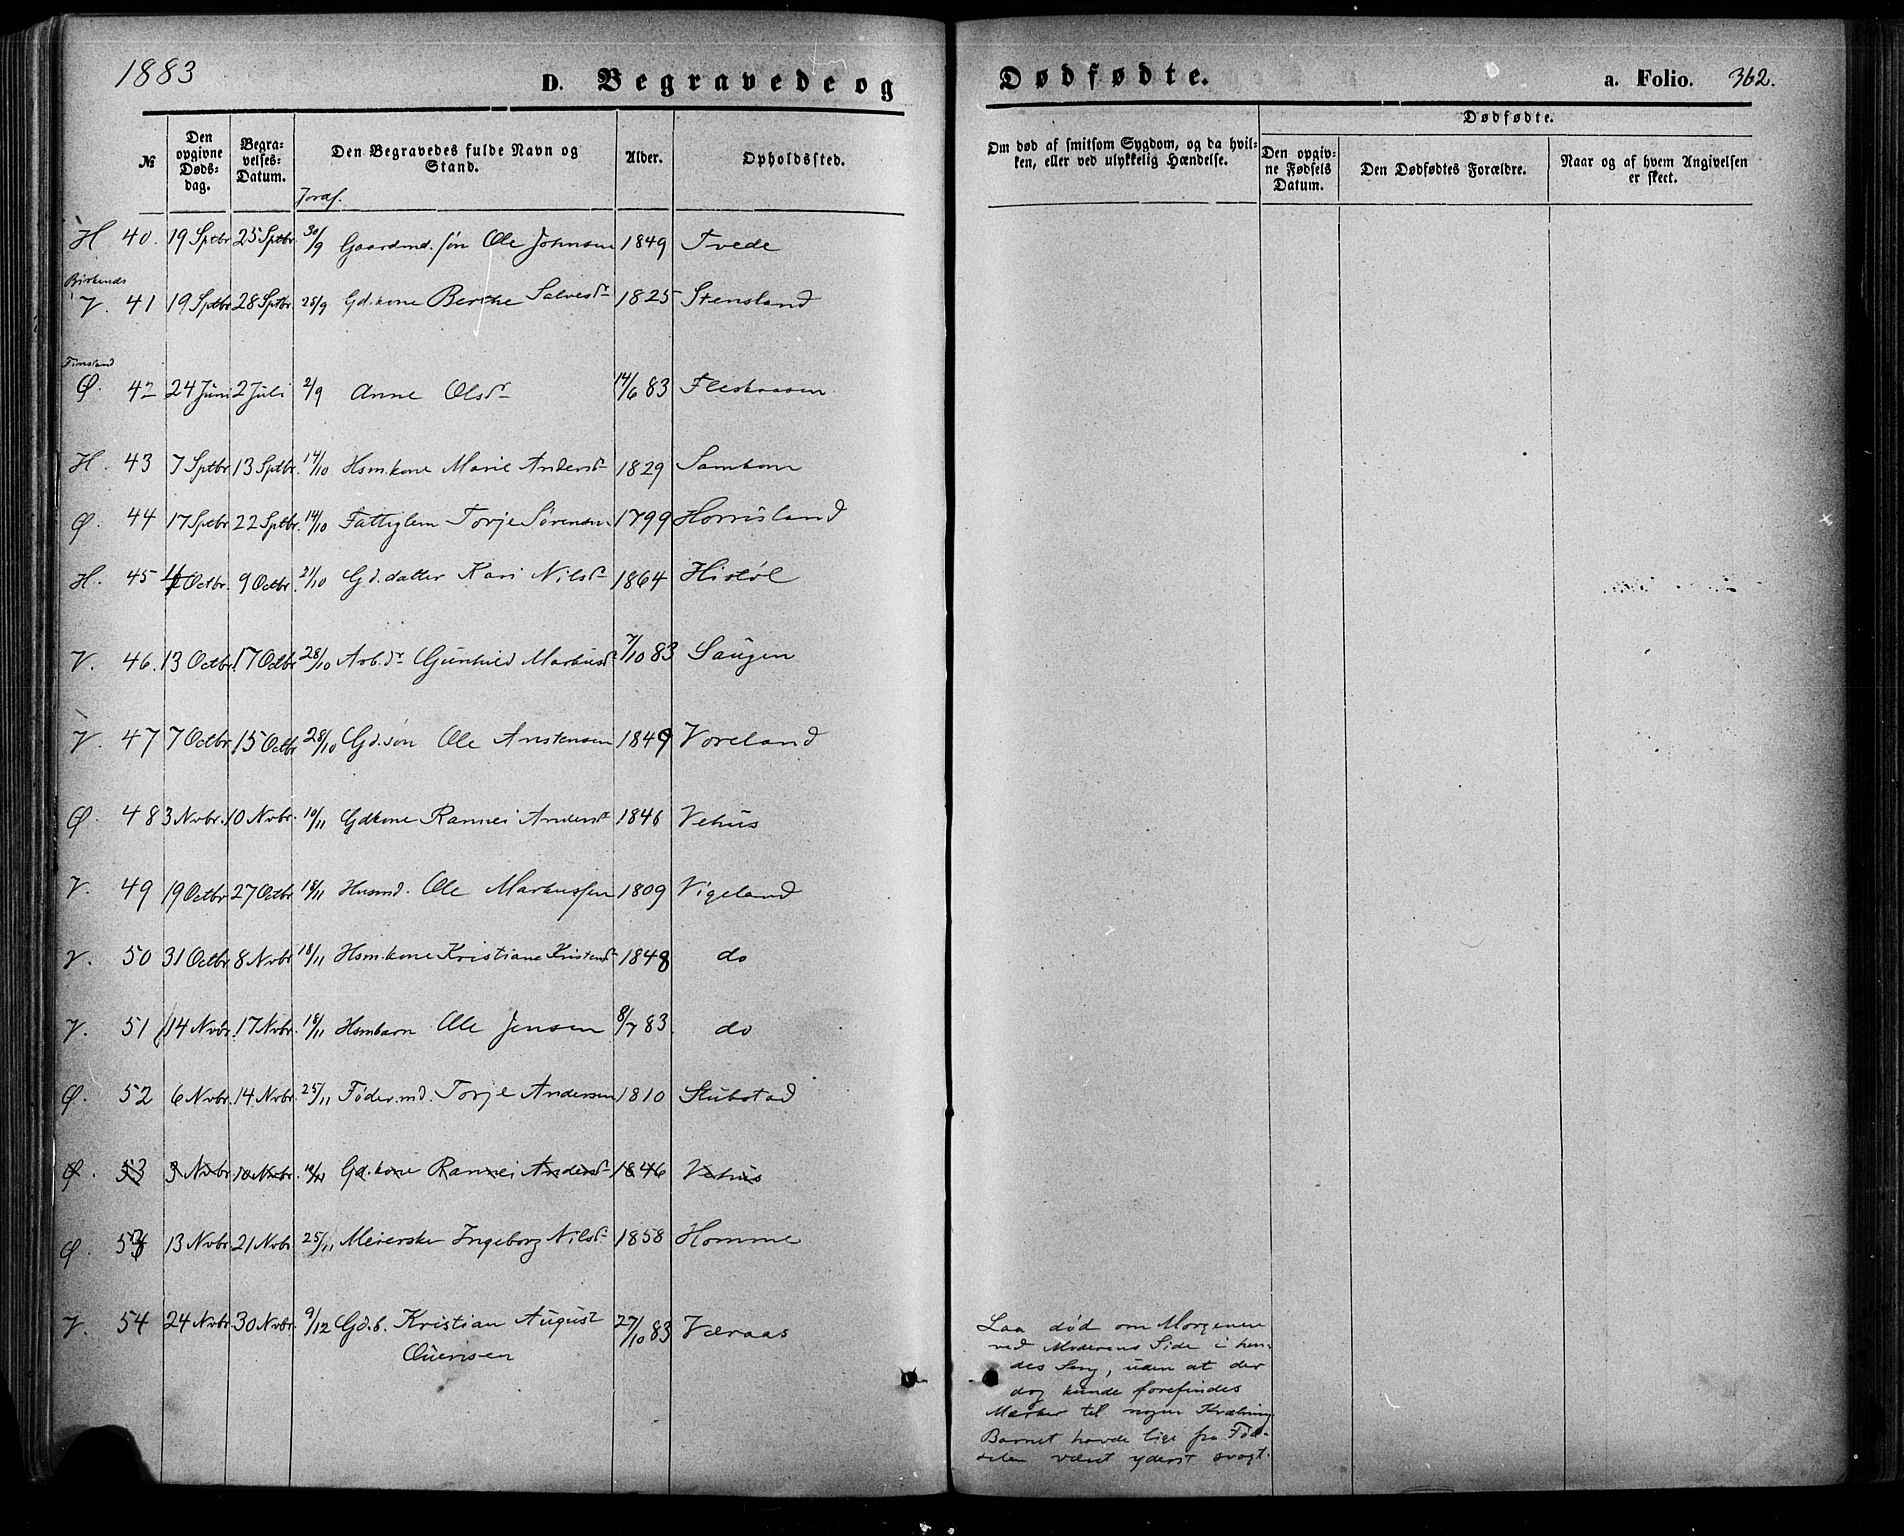 1883
D. Begravede og Dødfødte. a. Folio. 362.
№ Den opgivne Dødsdag. Begravelses-Datum. Den Begravedes fulde Navn og Stand. Alder. Opholdssted. Om død af smitsom Sygdom, og da hvilken, eller ved ulykkelig Hændelse. Dødfødte. Den opgivne Fødsels Datum. Den Dødfødtes Forældre. Naar og af hvem Angivelsen er skeet.
Jordf.
H 40. 19 Sptbr 25 Sptbr. 30/9 Gaardmd. søn Ole Johnsen 1849 Tvede
Birkenes
V. 41 19 Sptbr 28 Sptbr Gd.kone Berthe Salvesdr 1825 Stensland
Finsland
Ø. 42 24 Juni 2 Juli 2/9 Anne Olsdr 14/6 83 Fleskaasen
H. 43 7 Sptbr 13 Sptbr. 14/10 Hsm.kone Marie Andersdr 1829 Samkom
Ø. 44 17 Sptbr 22 Sptbr. 14/10 Fattiglem Torje Sørensen 1799 Horrisland
H. 45 4 Octbr. 9 Octbr. 21/10 Gd.datter Kari Nilsdr 1864 Histøl
V. 46. 13 Octbr. 17 Octbr 28/10 Arb.dr Gunhild Markusdr 7/10 83 Saugen
V. 47 7 Octbr 15 Octbr 28/10 Gd.søn Ole Anstensen 1849 Voreland
Ø. 48 3 Nvbr. 10 Nvbr. 10/11 Gdkone Rannei Andersdr 1846 Vehus
V. 49 19 Octbr 27 Octbr 18/11 Husmd. Ole Markussen 1809 Vigeland
V. 50 31 Octbr 8 Nvbr 18/11 Hsm.kone Kristiane Kristensdr 1848 do
V. 51 14 Nvbr. 17 Nvbr. 18/11 Hsmbarn Ole Jensen 8/7 83. do
Ø. 52 6 Nvbr. 14 Nvbr. 25/11 Føder.md. Torje Andersen 1810 Stubstad
Ø. 53 3 Nvbr 10 Nvbr. Gd.kone Rannei Andersdr 1846 Vehus
Ø. 53 13 Nvbr. 21 Nvbr 25/11 Meierske Ingeborg Nilsdr 1858 Homme
V. 54 24 Nvbr. 30 Nvbr. 9/12 Gd.b. Kristian August 27/10 83 Væraas
Ouensen
Laa død om Morgenen
ved Moderens Side i hen-
des Seng, uden at der
dog kunde forefindes
Mærker til nogen Kvælning
Barnet havde lige fra Fød-
selen været yderst svagt.